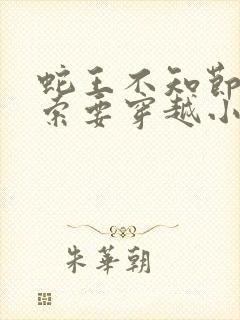 蛇王不知节
索要穿越小
朱華朝